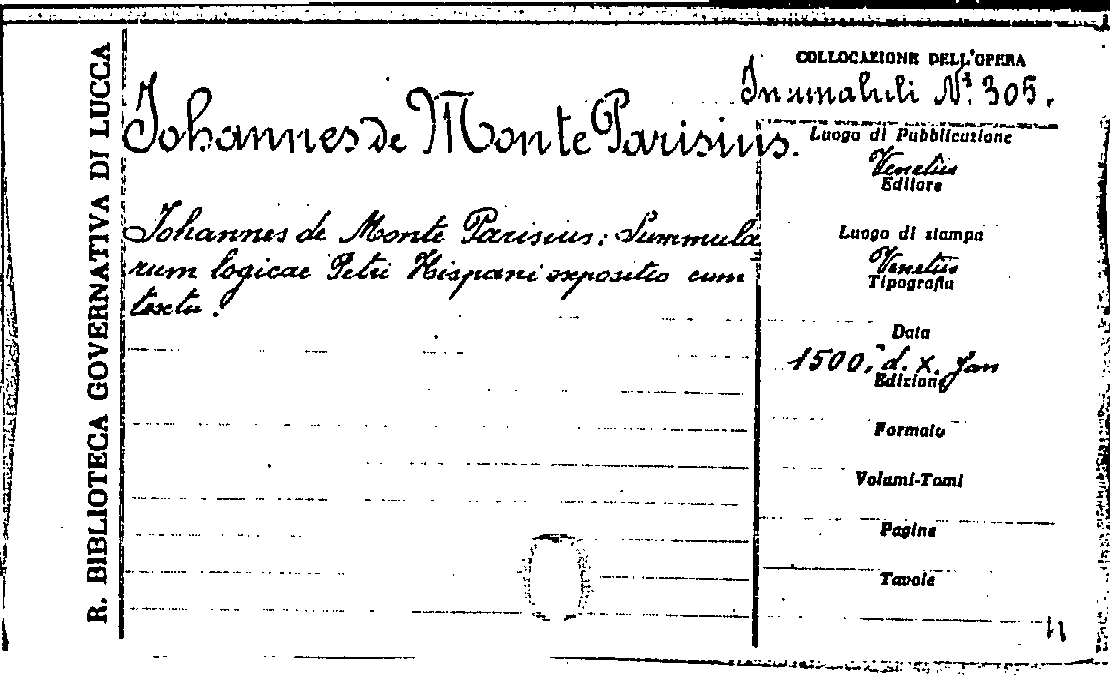 R. BIBLIOTECA GOVERNATIVA DI LUCCA
Johannes de Monte Parisius.
Johannes de Monte Parisius: Summula
rum logicae Petri Hispani expositio cum
textu.
COLLOCAZIONE DELL'OPERA
N.° 305.
Luogo di Pubblicazione
Venetiis
Editore
Luogo di stampa
Venetiis
Tipografia
Data
1500, d. X. Jan
Edizione
Formato
Volumi-Tomi
Pagine
Tavole